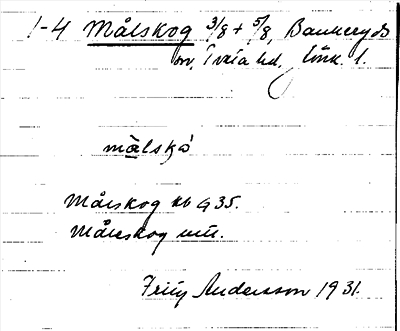 1-4 Målskog 3/8 + 5/8, Bankeryds
sn, Tveta hd, Jönk. l.
målskò
Målskog kb G 35.
Målskog
Fritz Andersson 1931.